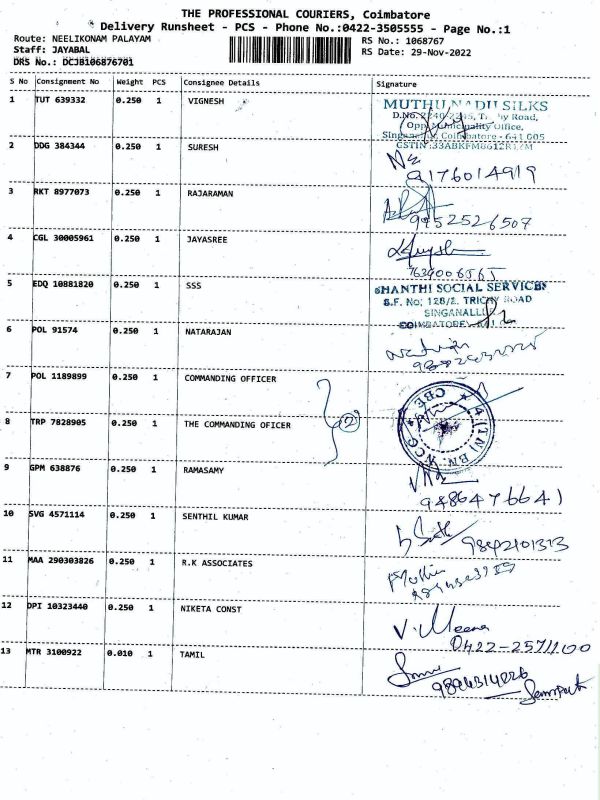 THE PROFESSIONAL COURIERS, Coimbatore
Delivery Runsheet - PCS - Phone No.:0422-3505555 - Page No.:1
Route: NEELIKONAM PALAYAM
Staff: JAYABAL
DRS No.: DCJB106876701
RS No.: 1068767
RS Date: 29-Nov-2022
S No Consignment No Weight PCS Consignee Details Signature
1 TUT 639332 0.250 1 VIGNESH
MUTHU NADU SILKS
Road,
Opp. Municipality Office,
Coimbatore - 641 005
2 DDG 384344 0.250 1 SURESH
9176014919
3 RKT 8977073 0.250 1 RAJARAMAN
9952526507
4 CGL 30005961 0.250 1 JAYASREE
5 EDQ 10881820 0.250 1 SSS
SHANTHI SOCIAL SERVICES
S.F. No: 128/2, TRICHY ROAD
SINGANALLU
COIMBATORE
6 POL 91574 0.250 1 NATARAJAN
7 POL 1189899 0.250 1 COMMANDING OFFICER
2
4 (TN) BN NCC CBE
8 TRP 7828905 0.250 1 THE COMMANDING OFICER
9 GPM 638876 0.250 1 RAMASAMY
9486476641
10 SVG 4571114 0.250 1 SENTHIL KUMAR
9842101313
11 MAA 290303826 0.250 1 R.K ASSOCIATES
12 DPI 10323440 0.250 1 NIKETA CONST
V. Meena
0422-2571100
13 MTR 3100922 0.010 1 TAMIL